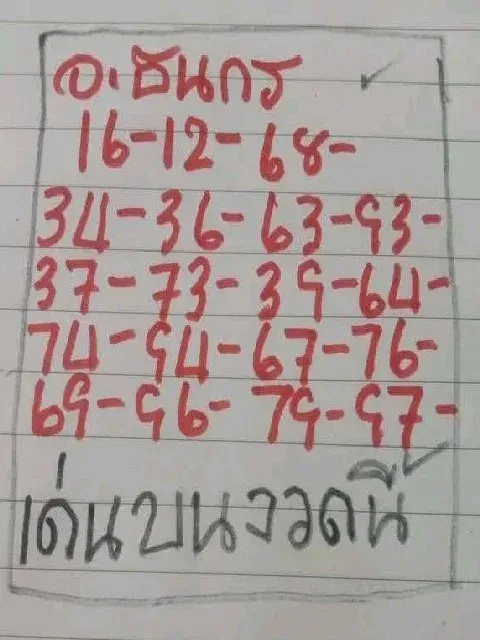 อ.ธินกร
16-12-68-
34-36-63-93-
37-73-39-64-
74-94-67-76-
69-96-79-97-
เด่นบนงวดนี้